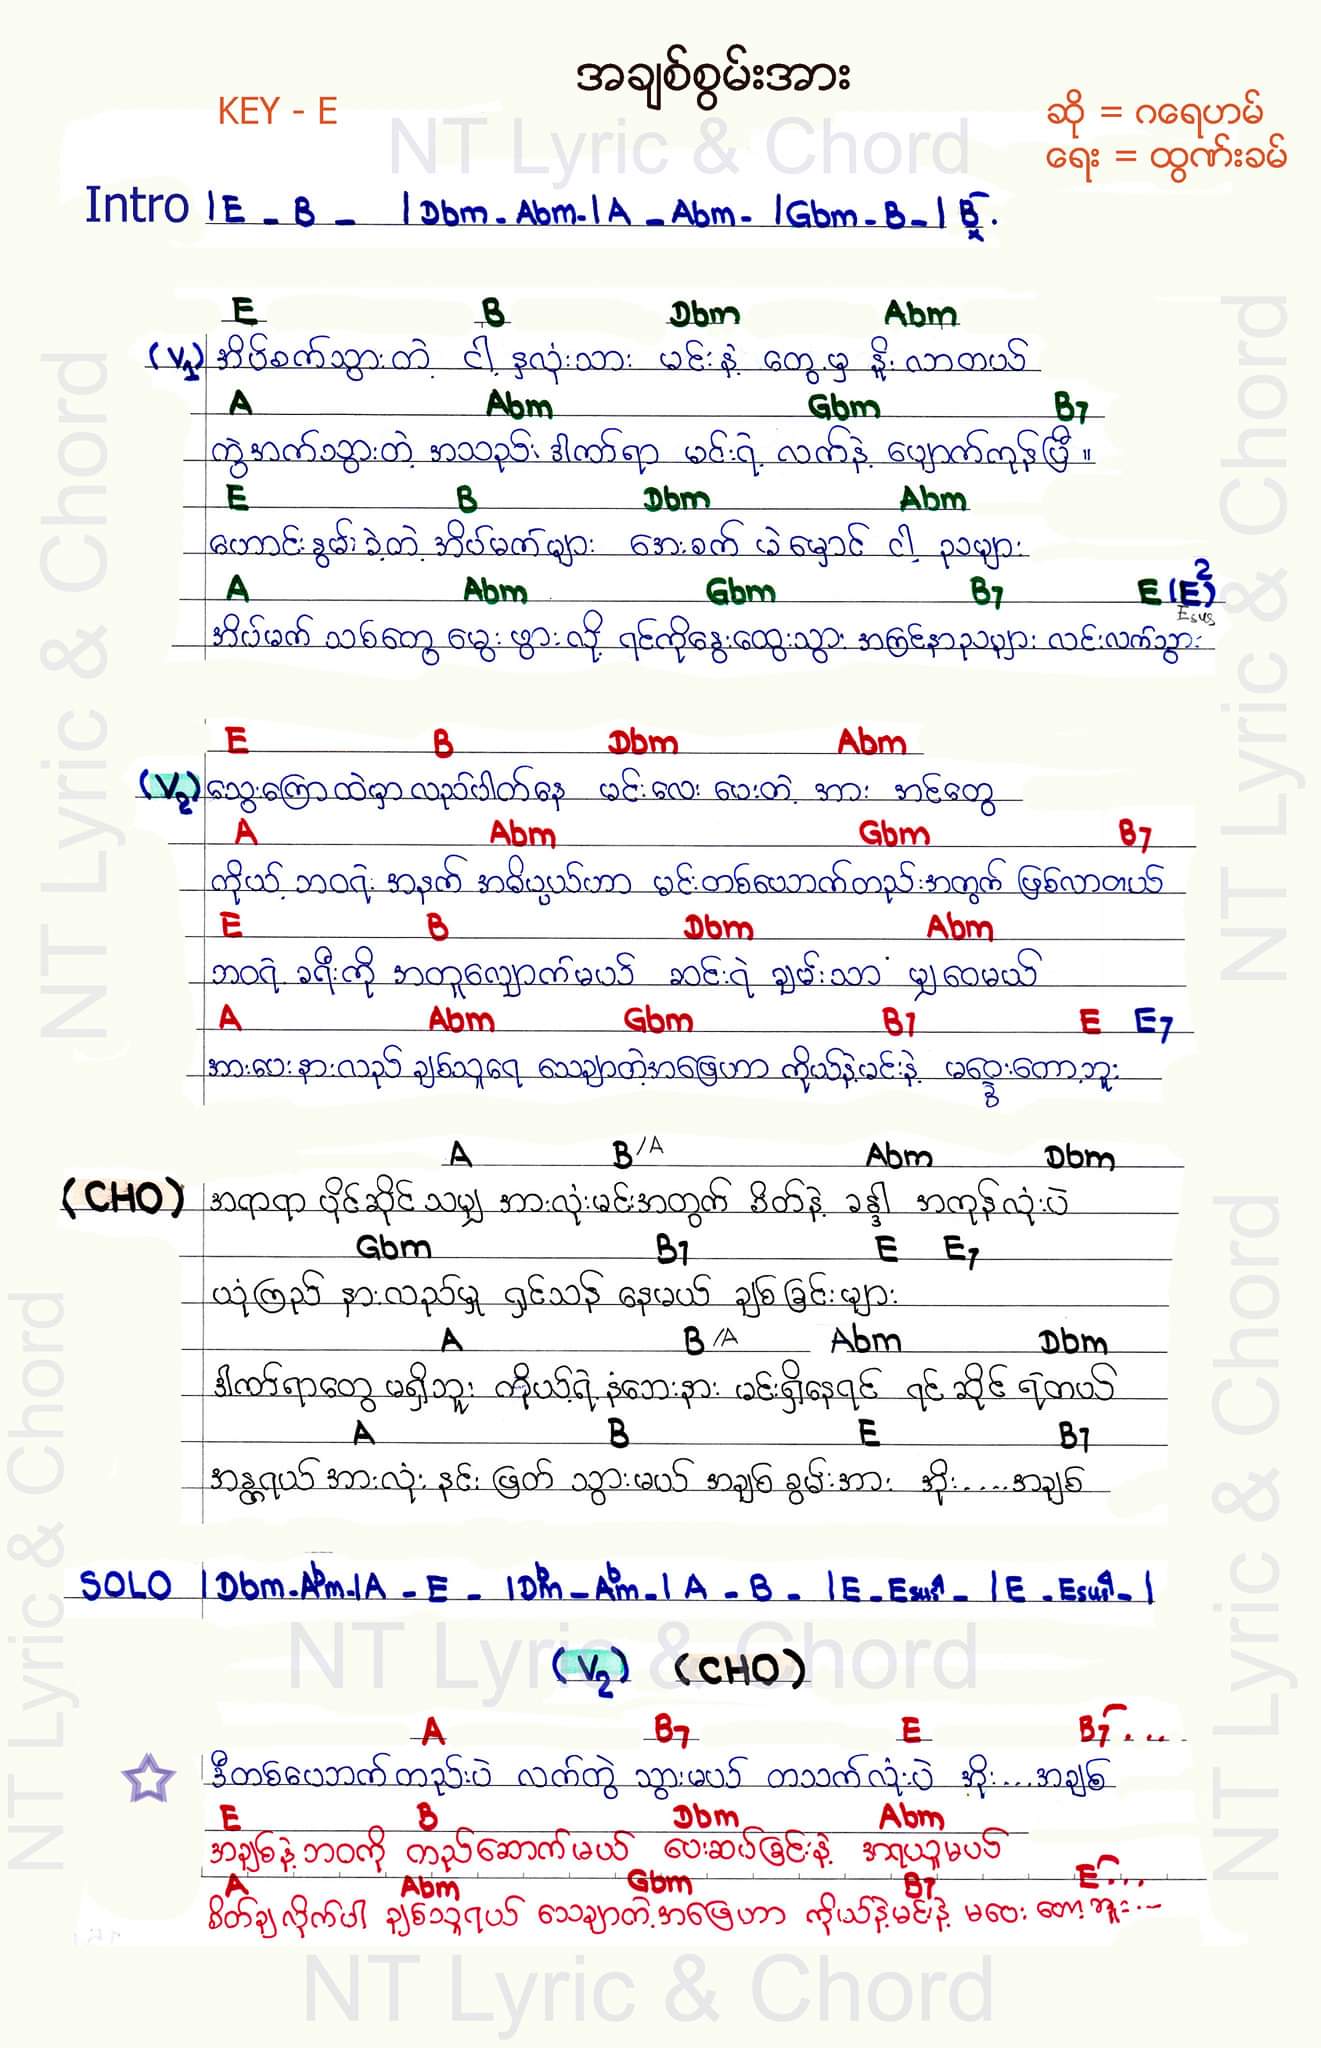 အချစ်စွမ်းအား
KEY - E
ဆို = ဂရေဟမ်
ရေး = ထွဏ်းခမ်
NT Lyric & Chord
Intro |E - B - |Dbm - Abm - |A - Abm - |Gbm - B - | B
E B Dbm Abm
(V1) အိပ်စက်သွားတဲ့ ငါ့ နှလုံးသား မင်းနဲ့ တွေ့မှ နိူးလာတယ်
A Abm Gbm B7
ကွဲအက်သွားတဲ့ အသည်း ဒါဏ်ရာ မင်းရဲ့ လက်နဲ့ ပျောက်ကုန်ပြီ။
E B Dbm Abm
ဟောင်းနွမ်းခဲ့တဲ့ အိပ်မက်များ အေးစက် မဲမှောင် ငါ့ ညများ
A Abm Gbm B7 E (E2)
Esus
အိပ်မက် သစ်တွေ မွေးဖွားလို့ ရင်ကိုနွေးထွေးသွား အကြင်နာညများ လင်းလက်သွား
E B Dbm Abm
(V2) သွေးကြောထဲမှာ လည်ပါတ်နေ မင်းလေး ပေးတဲ့ အား အင်တွေ
A Abm Gbm B7
ကိုယ့် ဘဝရဲ့ အနက် အဓိပ္ပယ်ဟာ မင်းတစ်ယောက်တည်းအတွက် ဖြစ်လာတယ်
E B Dbm Abm
ဘဝရဲ့ ခရီးကို အတူလျှောက်မယ် ဆင်းရဲ ချမ်းသာ မျှဝေမယ်
A Abm Gbm B7 E E7
အားပေးနားလည် ချစ်သူရေ သေချာတဲ့အဖြေဟာ ကိုယ်နဲ့မင်းနဲ့ မဝေးတော့ဘူး
A B/A Abm Dbm
(CHO) အရာရာ ပိုင်ဆိုင်သမျှ အားလုံးမင်းအတွက် စိတ်နဲ့ ခန္ဓါ အကုန်လုံးပဲ
Gbm B7 E E7
ယုံကြည် နားလည်မှု ရှင်သန် နေမယ် ချစ်ခြင်းများ
A B/A Abm Dbm
ဒါဏ်ရာတွေ မရှိဘူး ကိုယ့်ရဲ့ နံဘေးနား မင်းရှိနေရင် ရင်ဆိုင် ရဲတယ်
A B E B7
အန္တရယ် အားလုံး နင်းဖြတ် သွားမယ် အချစ် စွမ်းအား အိုး.....အချစ်
SOLO |Dbm - Abm - |A - E - |Dbm - Abm - | A - B - |E - Esus4 - |E - Esus4 - |
NT Lyric & Chord
(V2) (CHO)
A B7 E B7....
ဒီတစ်ယောက်တည်းပဲ လက်တွဲ သွားမယ် တသက်လုံးပဲ အိုး....အချစ်
E B Dbm Abm
အချစ်နဲ့ ဘဝကို တည်ဆောက်မယ် ပေးဆပ်ခြင်းနဲ့ အရယူမယ်
A Abm Gbm B7 E...
စိတ်ချလိုက်ပါ ချစ်သူရယ် သေချာတဲ့အဖြေဟာ ကိုယ်နဲ့မင်းနဲ့ မဝေး တော့ဘူး...
NT Lyric & Chord
NT Lyric & Chord
NT Lyric & Chord
NT Lyric & Chord
NT Lyric & Chord